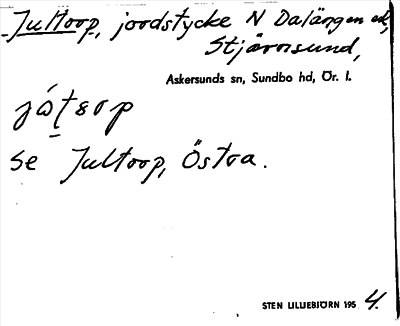 Jultorp, jordstycke N Dalängen ek,
Stjärnsund,
Askersunds sn, Sundbo hd, Ör. l.
se Jultorp, Östra.
STEN LILLIEBJÖRN 195 4.